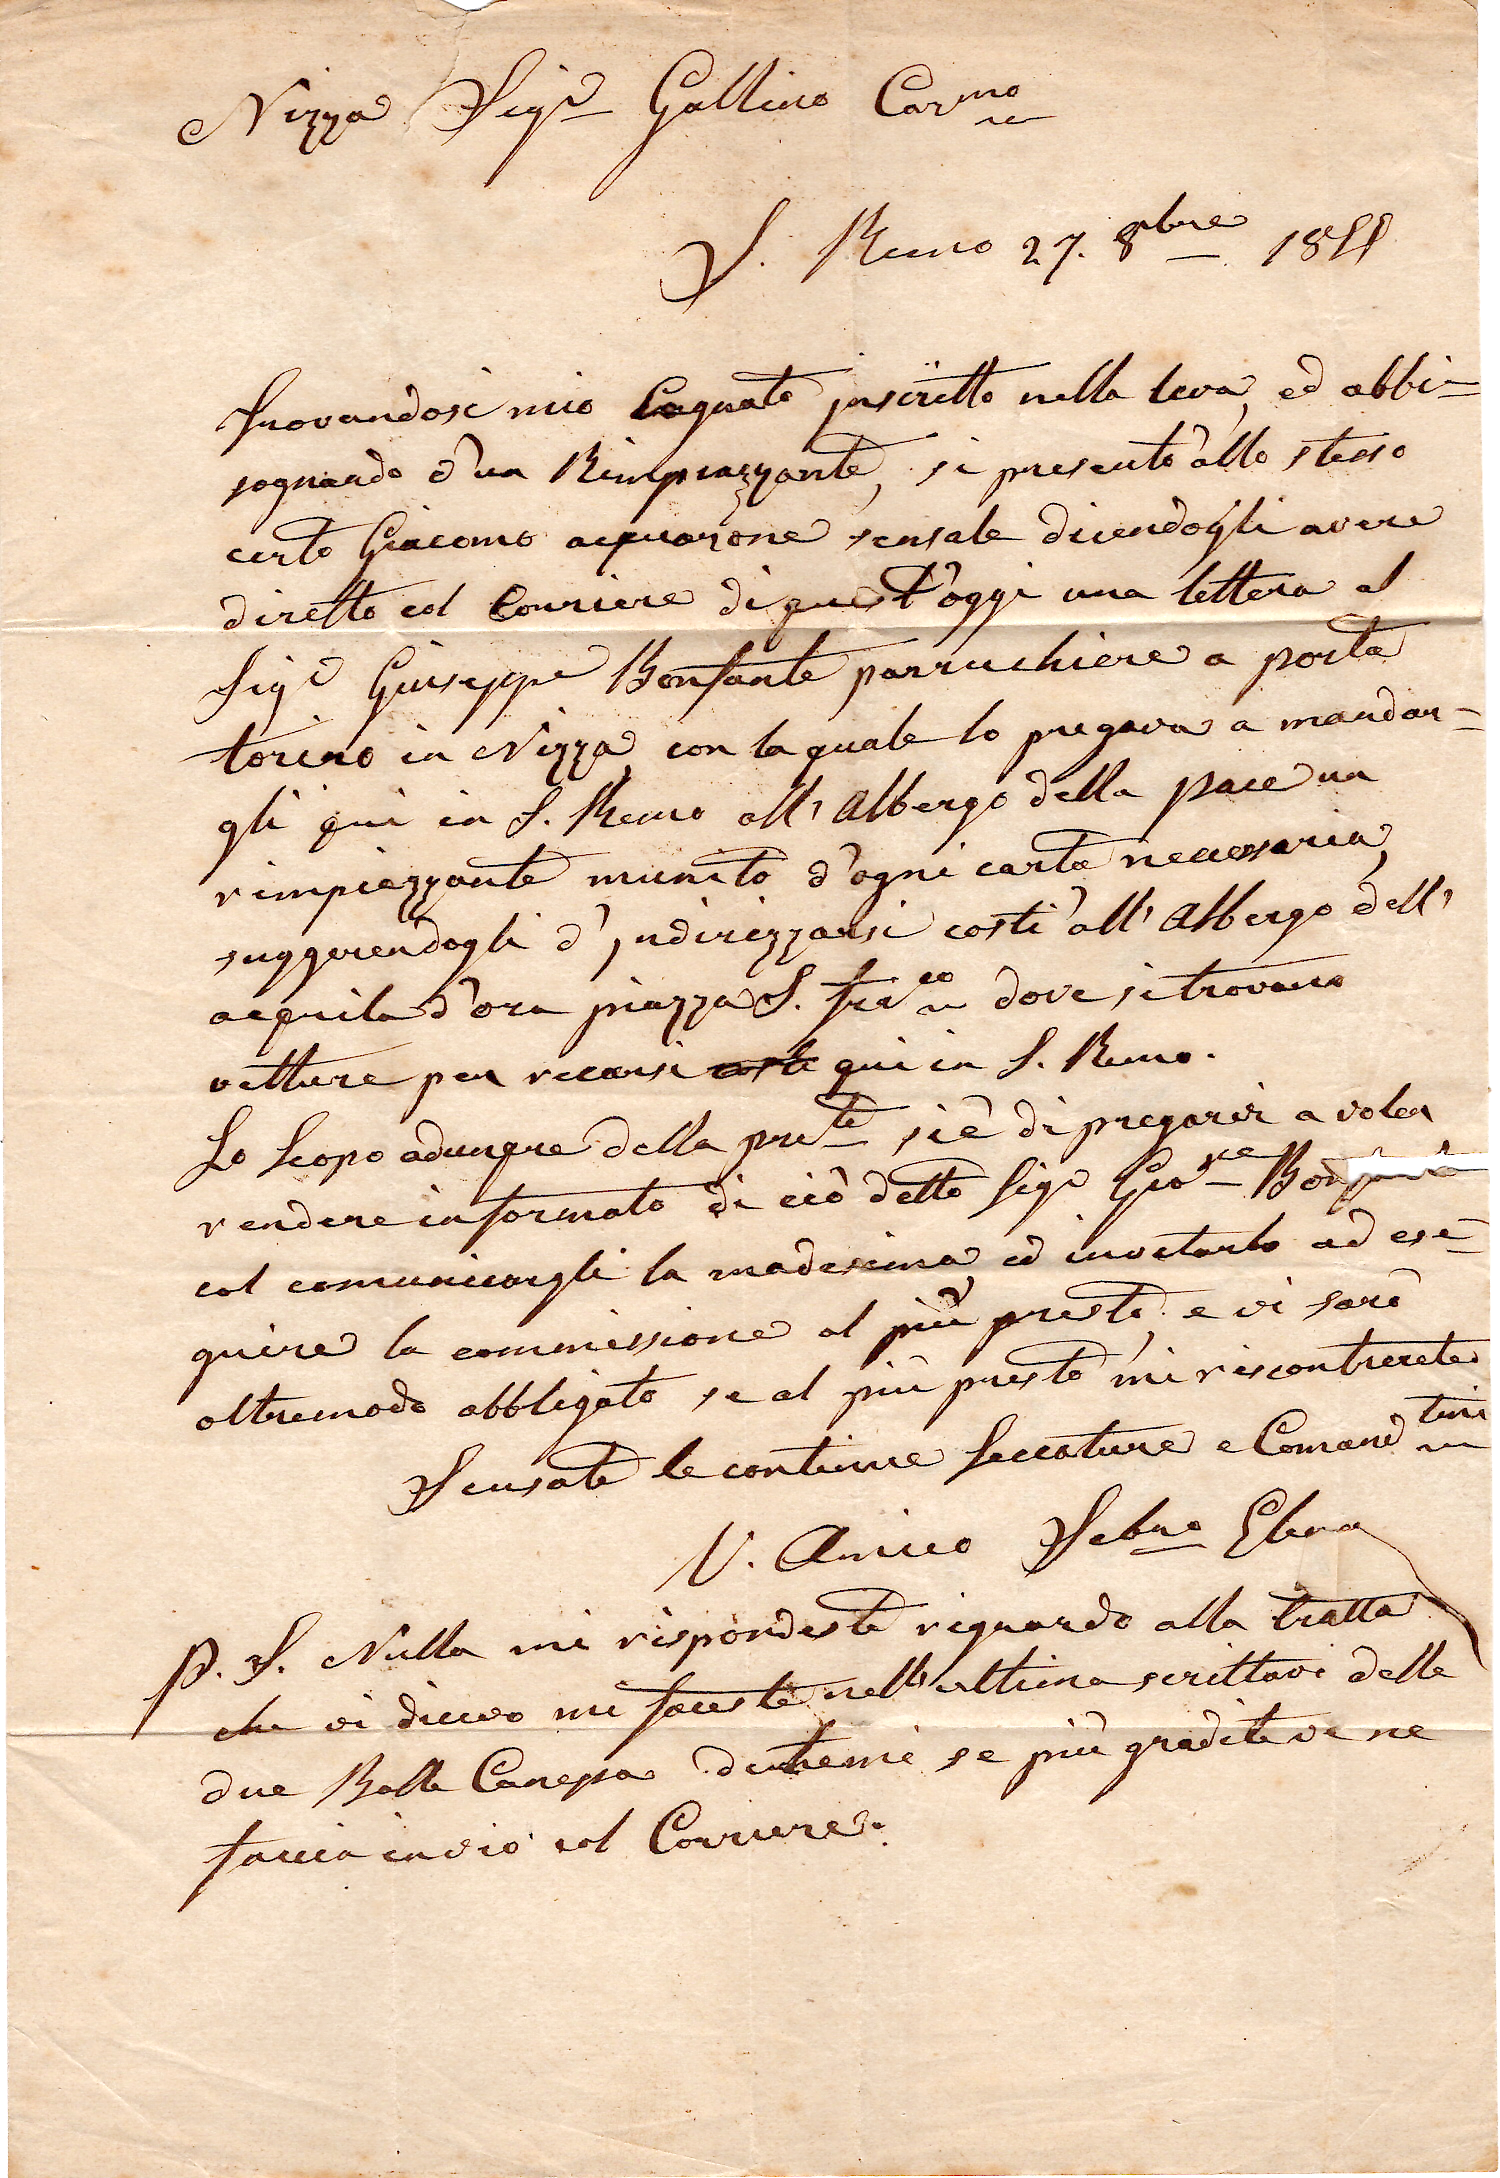 Nizza Sigr Gallino Carmo
S. Remo 27. 8bre 1855
Trovandosi mio Cognato inscritto nella leva, ed abbi=
sognando d'un Rimpiazzante, si presentò allo stesso
certo Giacomo acquarone sensale dicendogli avere
diretto col Corriere di quest'oggi una lettera al
Sigr Giuseppe Bonfante parruchiere a porta
torino in Nizza, con la quale lo pregava a mandar=
gli qui in S. Remo all'Albergo della pace un
rimpiazzante munito d'ogni carta necessaria,
suggerendogli d'indirizzarsi costì all'Albergo dell'
acquila d'ora piazza S. Franco dove si trovano
vetture per recarsi costì qui in S. Remo.
Lo Scopo adunque della prete si è di pregarvi a voler
rendere informato di ciò detto Sigr Giuse Bonfante
col comunicargli la madesima ed invitarlo ad ese=
guire la commissione al più presto, e vi sarò
oltremodo abbligato se al più presto mi riscontrerete
Scusate le continue seccature e Comandtemi
V. Amico Sebno Elena
P. S. Nulla mi rispondeste riguardo alla tratta
che vi dicevo mi faceste nell'ultima scrittavi delle
due Balle Canepa ditemi se più gradite ve ne
faccia invio col Corriere.